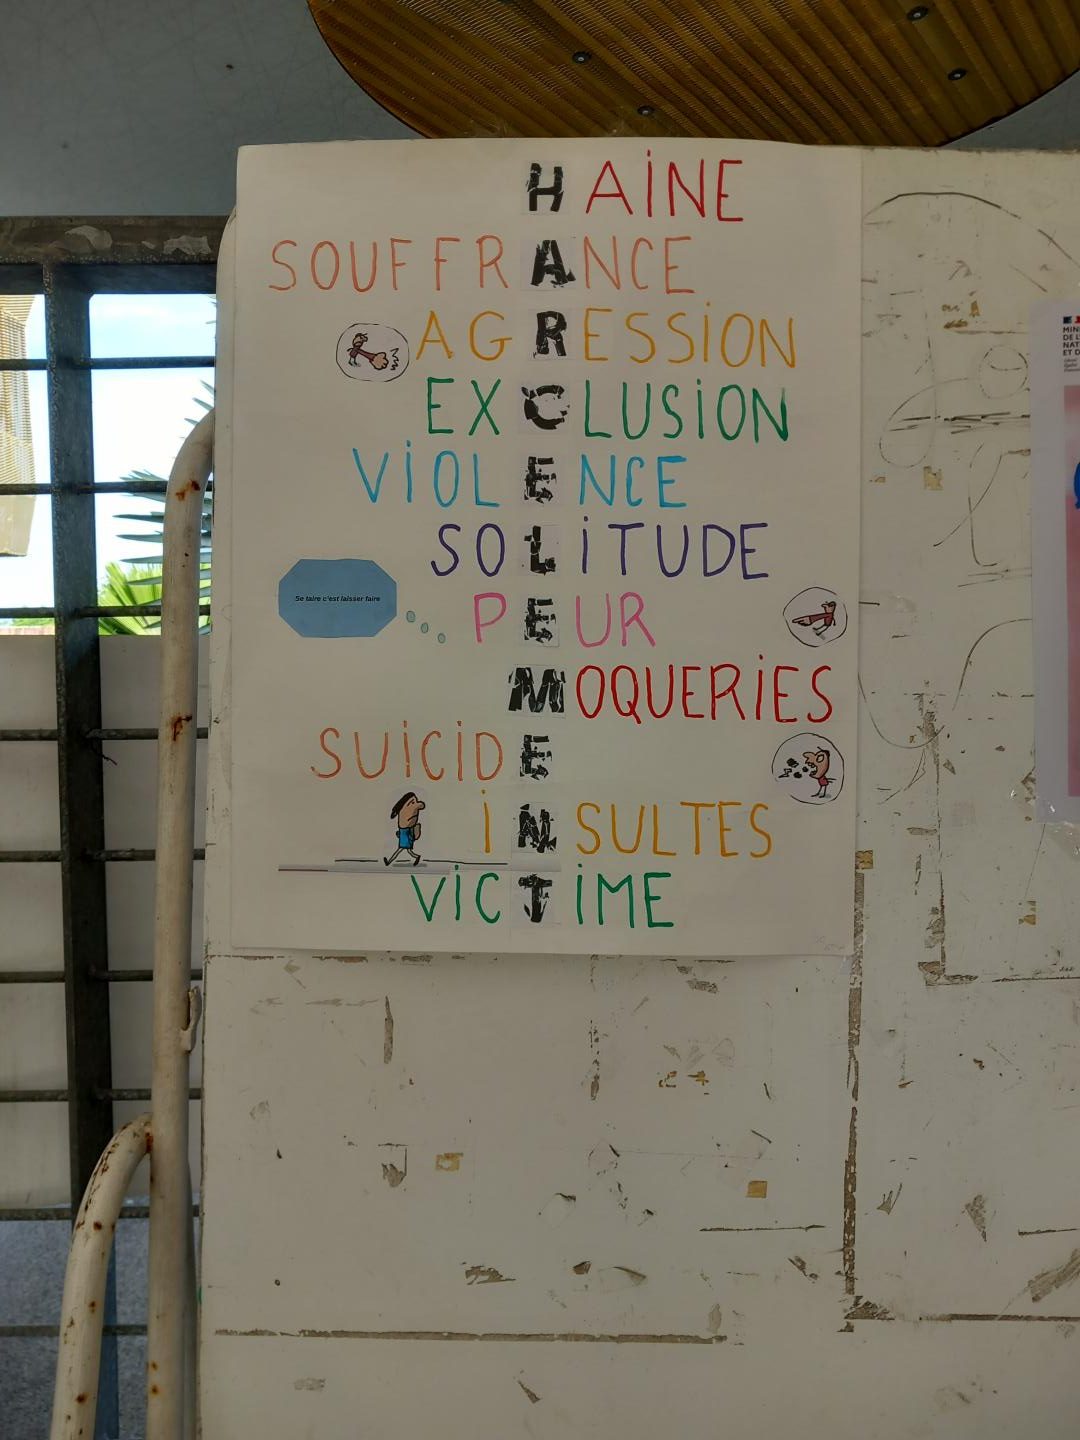 HAINE
SOUFFRANCE
AGRESSION
EXCLUSION
VIOLENCE
SOLITUDE
Se taire c'est laisser faire
PEUR
MOQUERIES
SUICIDE
INSULTES
VICTIME